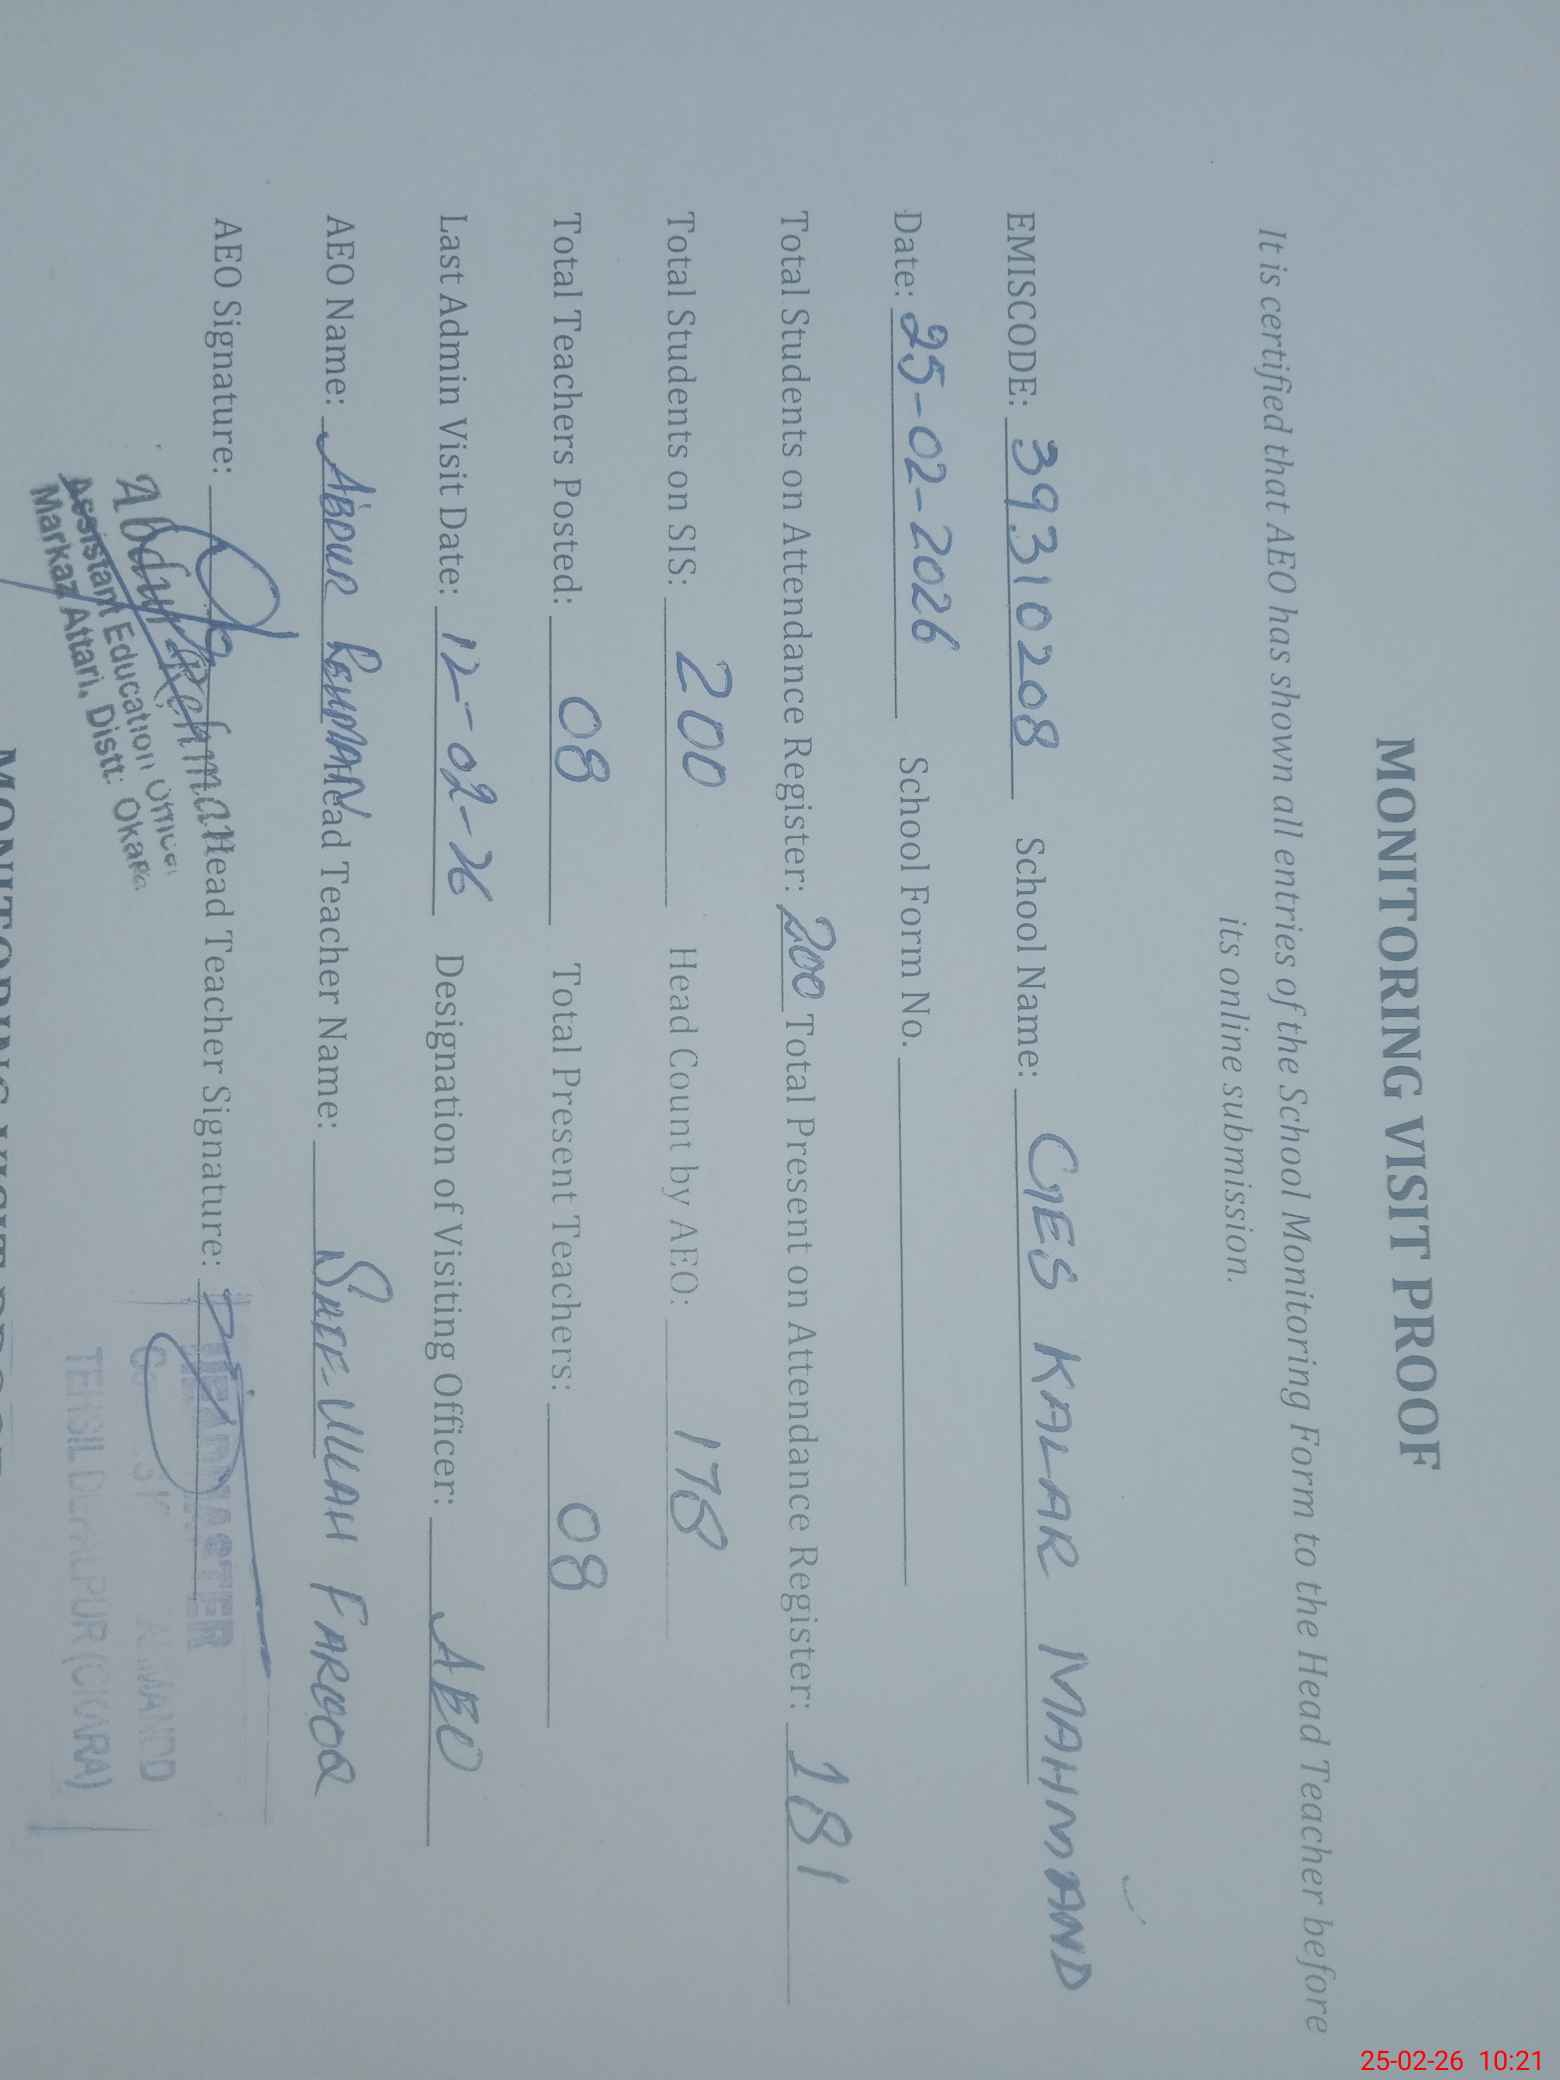 MONITORING VISIT PROOF
It is certified that AEO has shown all entries of the School Monitoring Form to the Head Teacher before
its online submission.
EMISCODE: 39310208 School Name: GES KALAR MAHMAND
Date: 25-02-2026 School Form No.
Total Students on Attendance Register: 200 Total Present on Attendance Register: 181
Total Students on SIS: 200 Head Count by AEO: 178
Total Teachers Posted: 08 Total Present Teachers: 08
Last Admin Visit Date: 12-02-26 Designation of Visiting Officer: AEO
AEO Name: ABDUR REHMAN Head Teacher Name: SAIF-ULLAH FAROOQ
AEO Signature: Head Teacher Signature:
Abdur Rehman
Assistant Education Officer
Markaz Attari, Distt: Okara
TEHSIL DEPALPUR (OKARA)
MONITORING VISIT PROOF
25-02-26 10:21